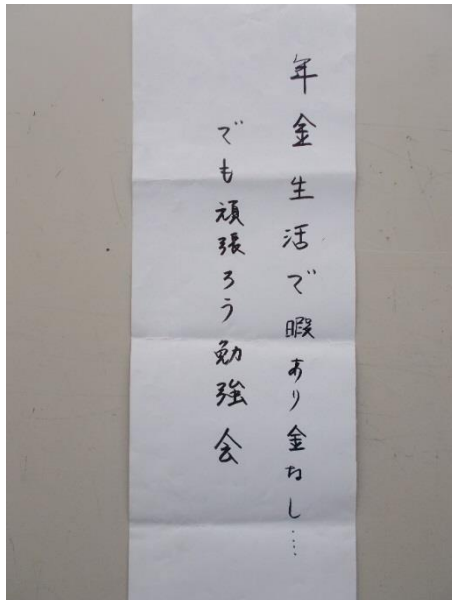 年金生活で暇あり金なし‥‥
でも頑張ろう勉強会